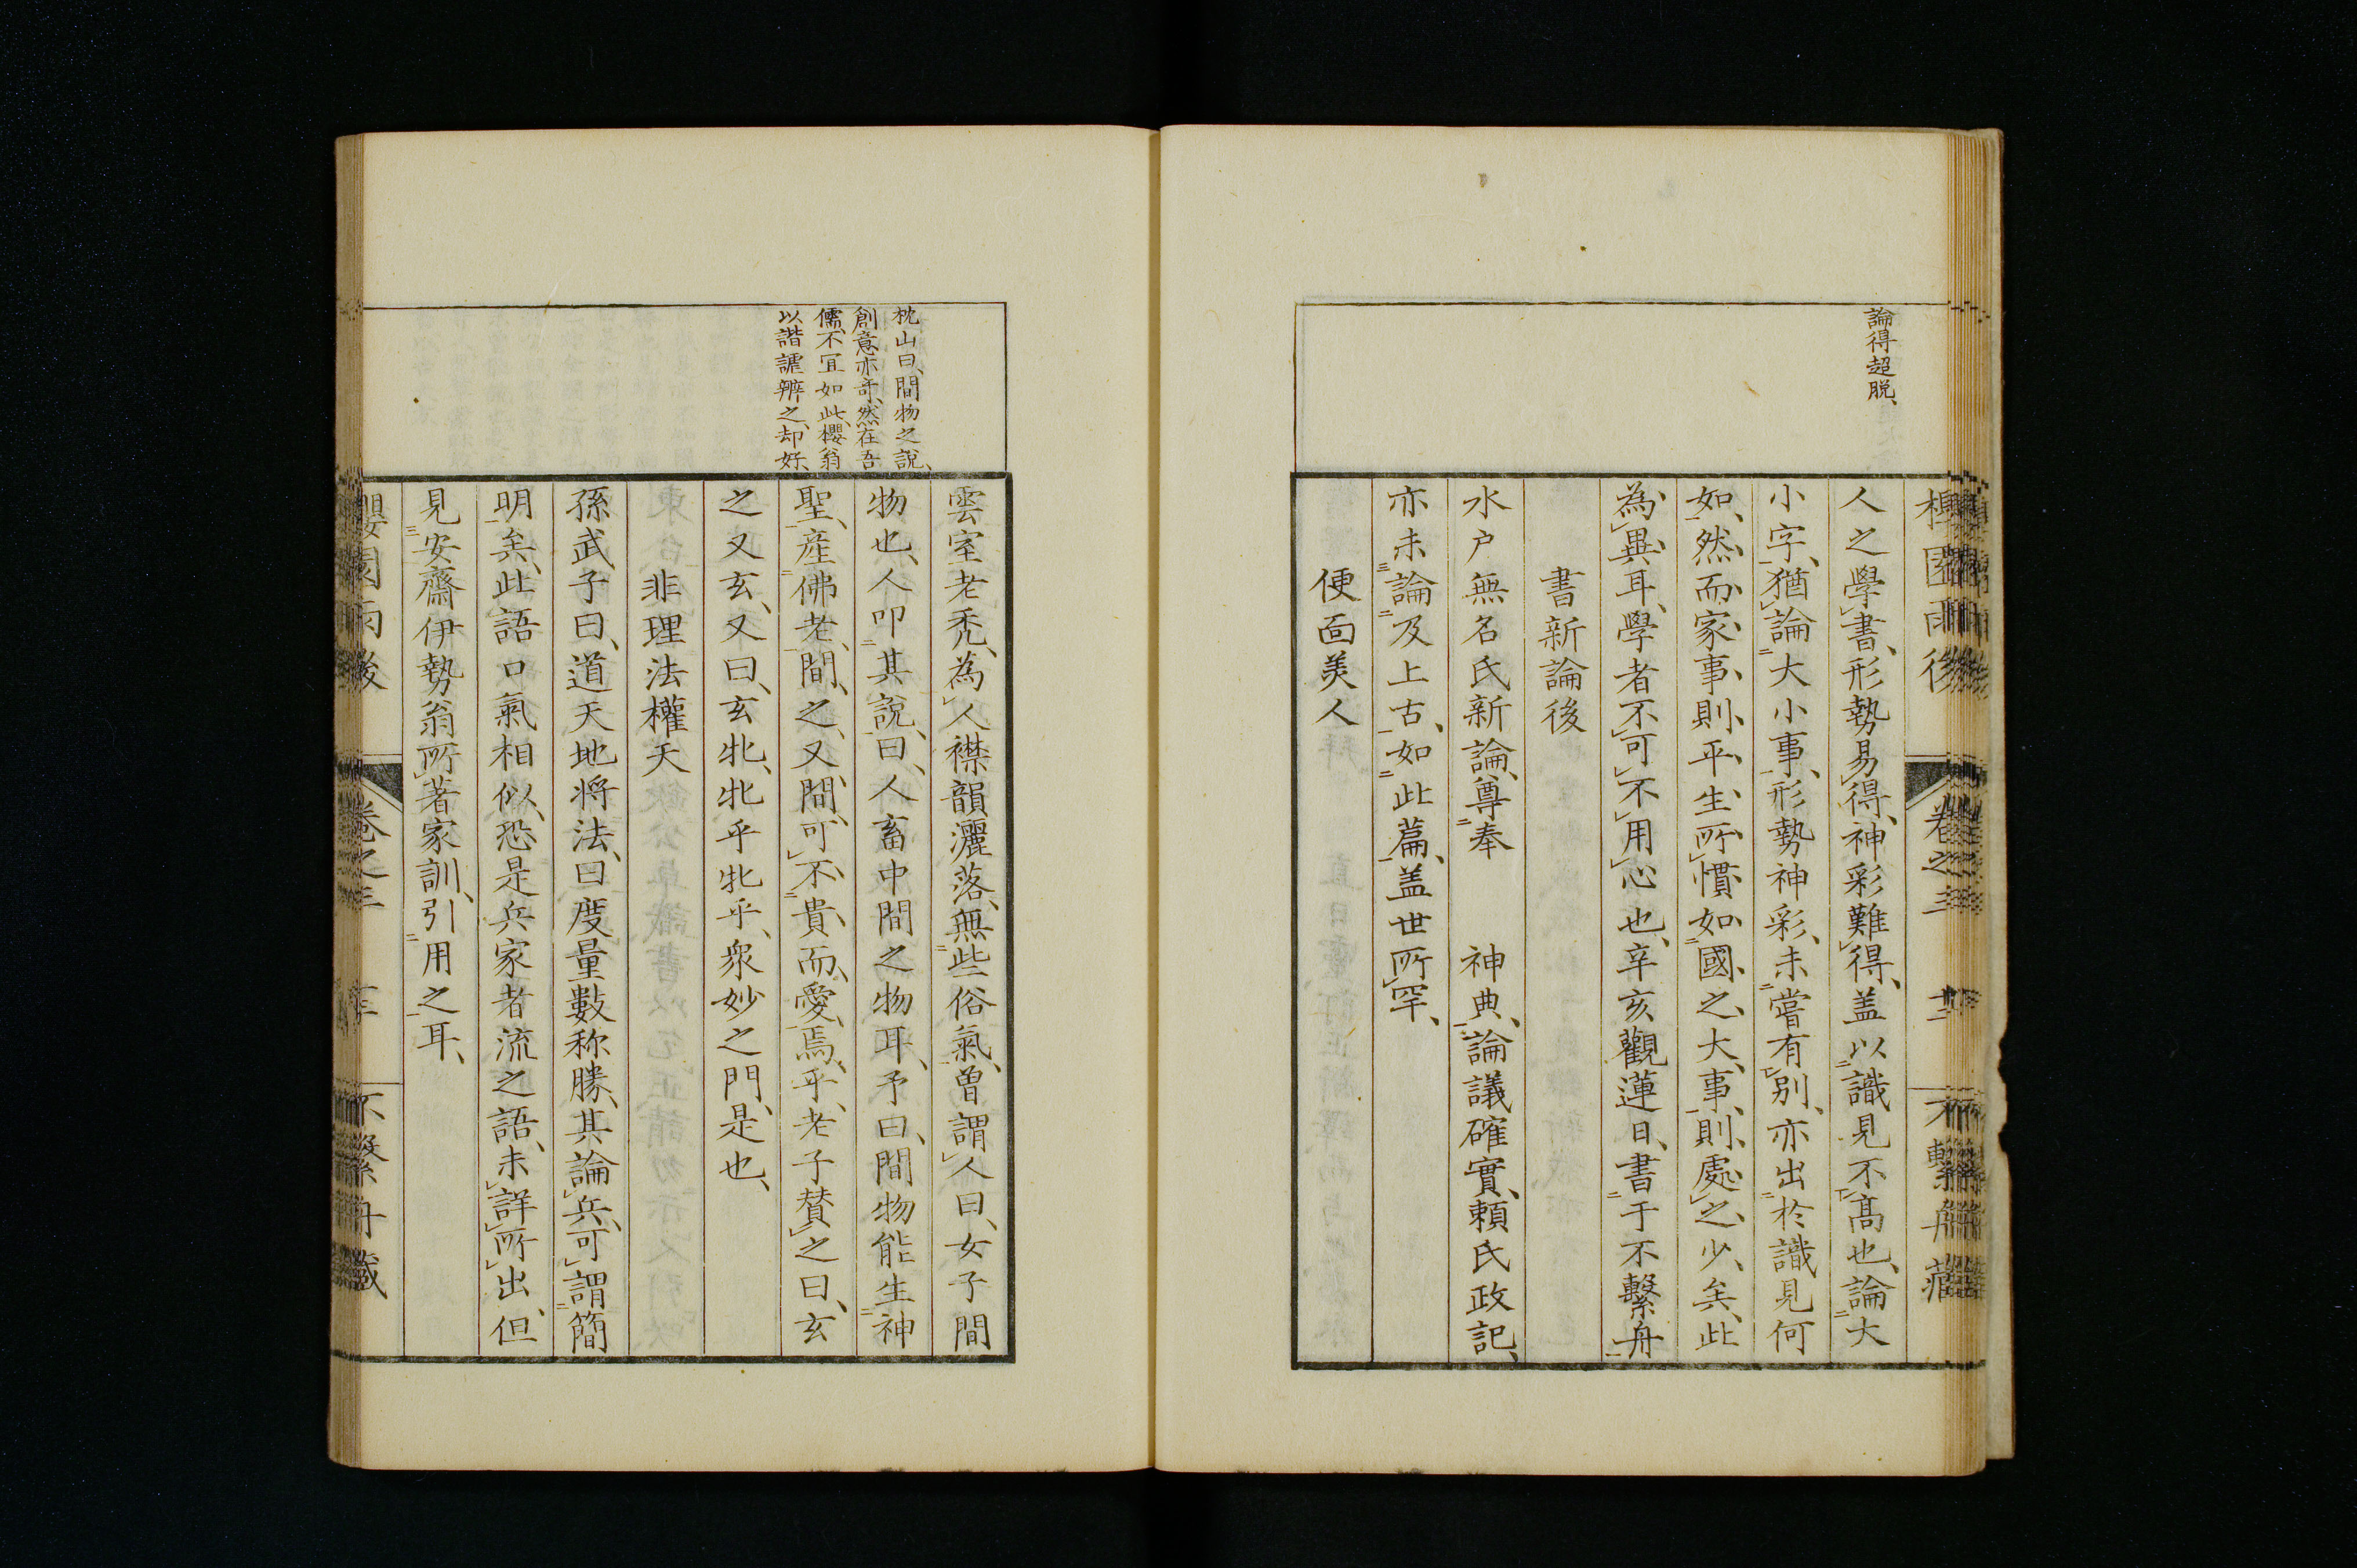 論得超脫、
人之學書、形勢易得、神彩難得、盖以識見不髙也、論大
小字、猶論大小事、形勢神彩、未嘗有別、亦出於識見何
如、然而家事則平生所慣、如國之大事、則處之少矣、此
為異耳、學者不可不用心也、辛亥觀蓮日、書于不繫舟
書新論後
水戶無名氏新論、尊奉　神典、論議確實、頼氏政記、
亦未論及上古、如此篇、盖世所罕、
便面美人
枕山曰、間物之說、
創意亦奇、然在吾
儒、不宜如此、櫻翁
以諧謔辨之、却好、
雲室老禿、為人襟韻灑落、無些俗氣、曽謂人曰、女子間
物也、人叩其說、曰、人畜中間之物耳、予曰、間物能生神
聖、産佛老、間之又間、可不貴而愛焉乎、老子賛之曰、玄
之又玄、又曰、玄牝、牝乎牝乎、衆妙之門、是也、
非理法權天
孫武子曰、道天地将法、曰度量數称勝、其論兵、可謂簡
明矣、此語口氣相似、恐是兵家者流之語、未詳所出、但
見安齋伊勢翁所著家訓、引用之耳、
櫻園雨後　卷之三　不繫舟藏